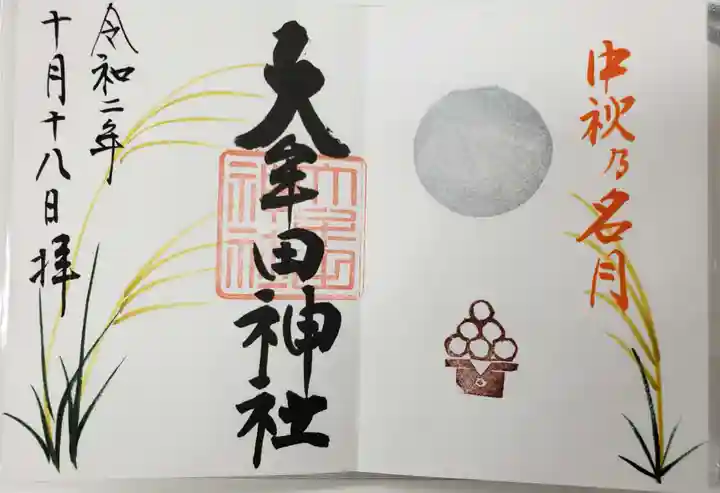 中秋乃名月
大牟田神社
令和二年
十月十八日拝